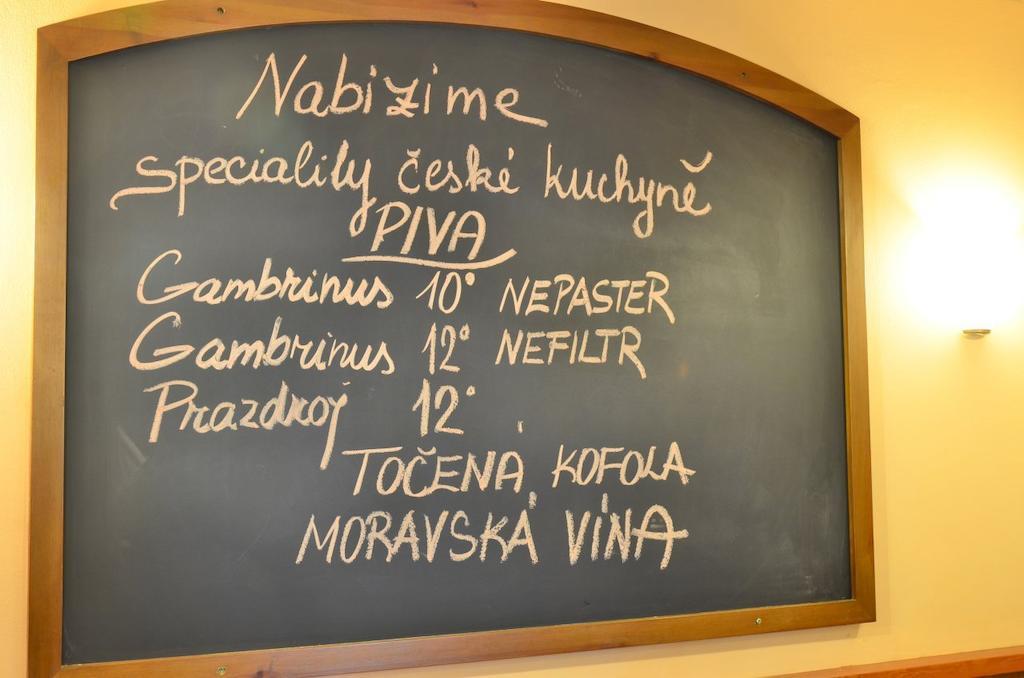 Nabizime
speciality české kuchyně
PIVA
Gambrinus 10° NEPASTER
Gambrinus 12° NEFILTR
Prazdroj 12°
TOČENÁ KOFOLA
MORAVSKÁ VÍNA